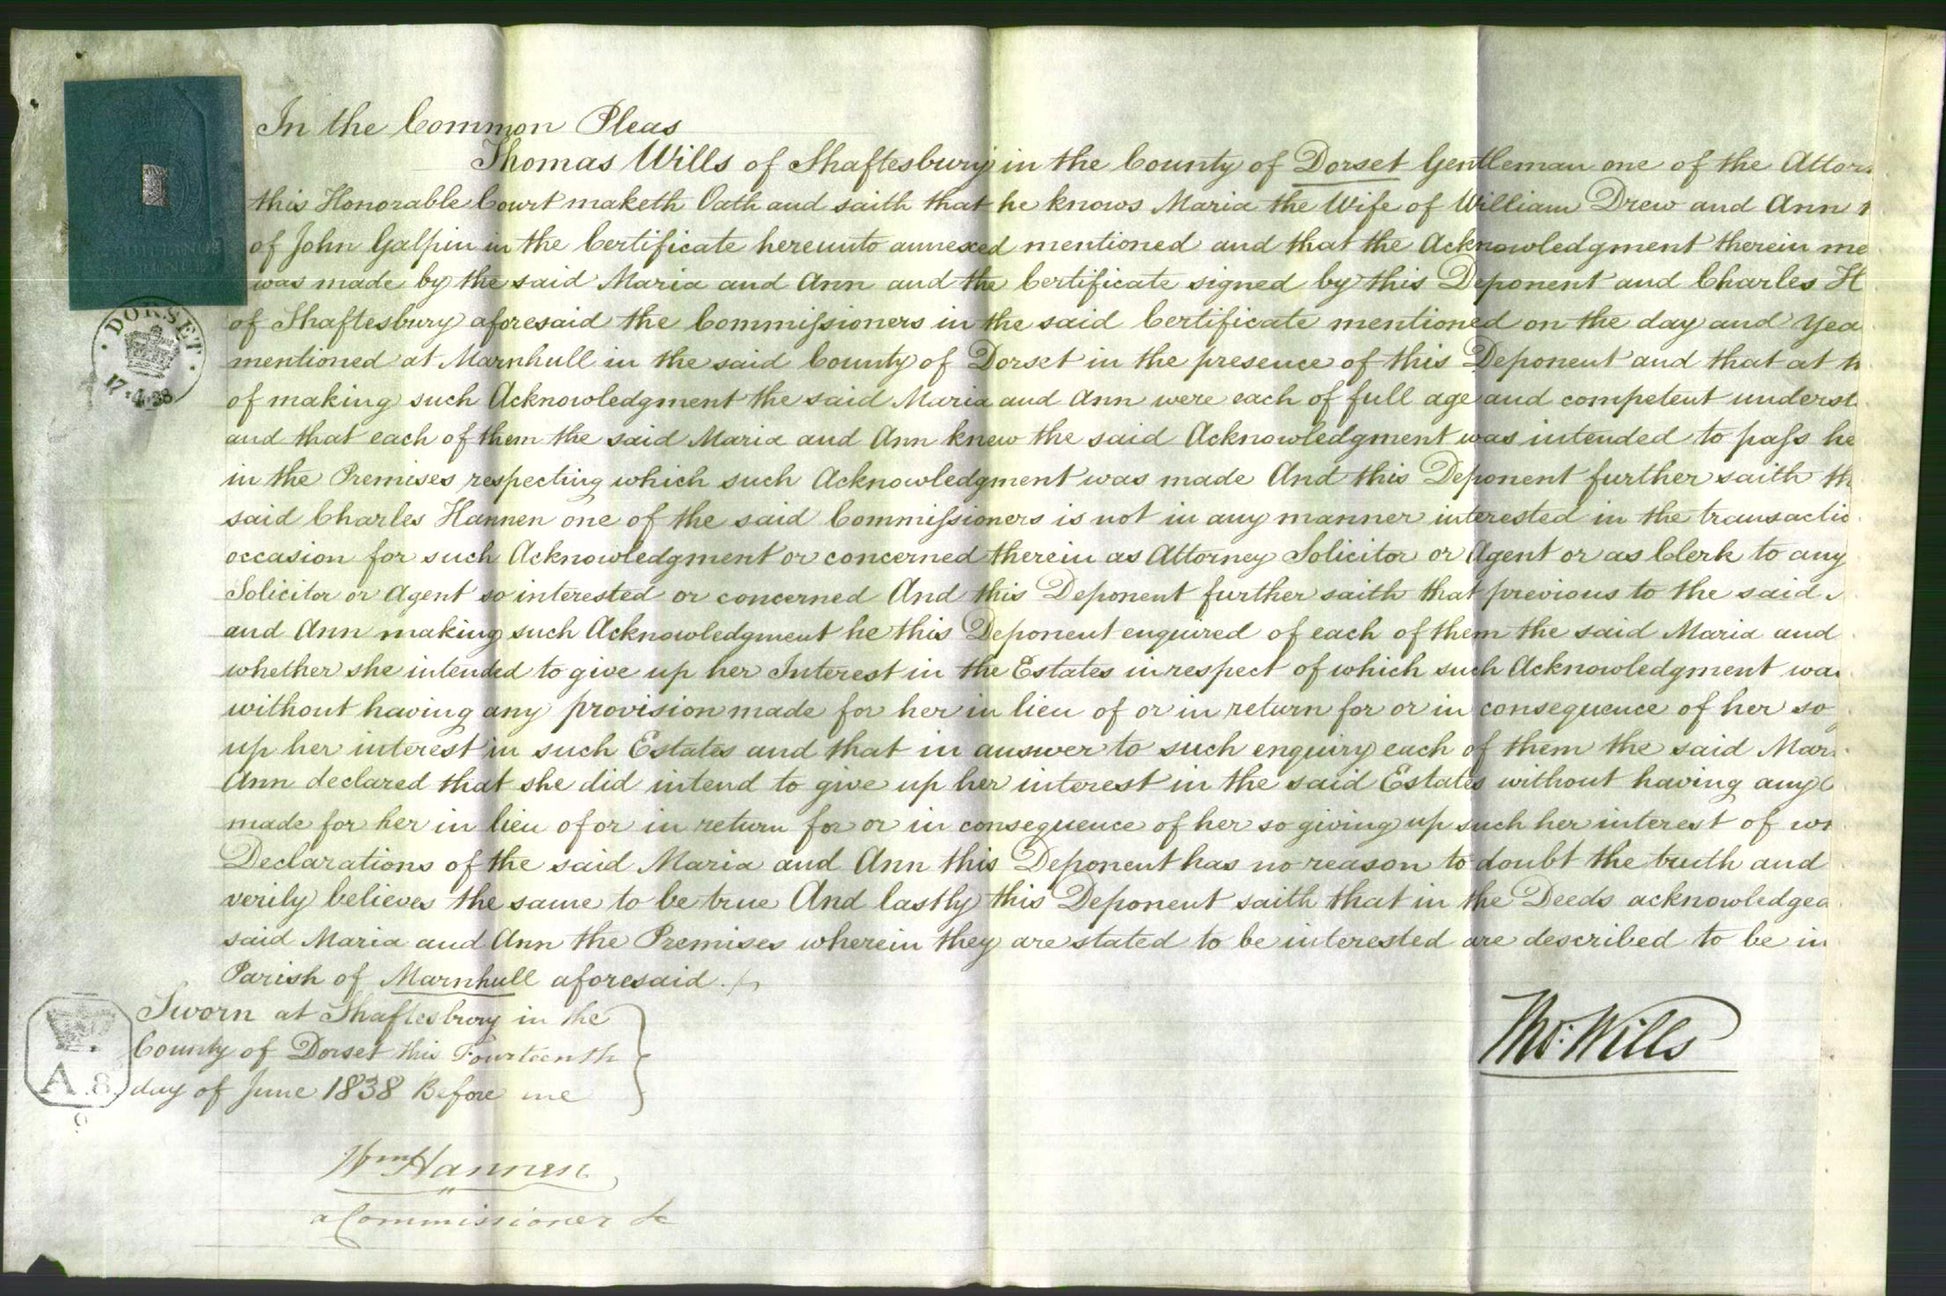 In the Common Pleas
Thomas Wills of Shaftesbury in the County of Dorset Gentleman one of the Attor
this Honorable Court maketh Oath and saith that he knows Maria the Wife of William Drew and Ann
of John Galpin in the Certificate hereunto annexed mentioned and that the Acknowledgment therein me
was made by the said Maria and Ann and the Certificate signed by this Deponent and Charles H
of Shaftesbury aforesaid the Commissioners in the said Certificate mentioned on the day and Yea
mentioned at Marnhull in the said County of Dorset in the presence of this Deponent and that at
of making such Acknowledgment the said Maria and Ann were each of full age and competent underst
and that each of them the said Maria and Ann knew the said Acknowledgment was intended to pass he
in the Premises respecting which such Acknowledgment was made And this Deponent further saith th
said Charles Hannen one of the said Commissioners is not in any manner interested in the transactio
occasion for such Acknowledgment or concerned therein as Attorney Solicitor or Agent or as Clerk to any
Solicitor or Agent so interested or concerned And this Deponent further saith that previous to the said
and Ann making such Acknowledgment he this Deponent enquired of each of them the said Maria and
whether she intended to give up her Interest in the Estates in respect of which such Acknowledgment wa
without having any provision made for her in lieu of or in return for or in consequence of her so
up her interest in such Estates and that in answer to such enquiry each of them the said Mar
Ann declared that she did intend to give up her interest in the said Estates without having any
made for her in lieu of or in return for or in consequence of her so giving up such her interest of
Declarations of the said Maria and Ann this Deponent has no reason to doubt the truth and
verily believes the same to be true And lastly this Deponent saith that in the Deeds acknowledged
said Maria and Ann the Premises wherein they are stated to be interested are described to be in
Parish of Marnhull aforesaid.
Sworn at Shaftesbury in the
County of Dorset this Fourteenth
day of June 1838 Before me
Wm Hannen
a Commissioner &c
Tho: Wills
DORSET
A.8.